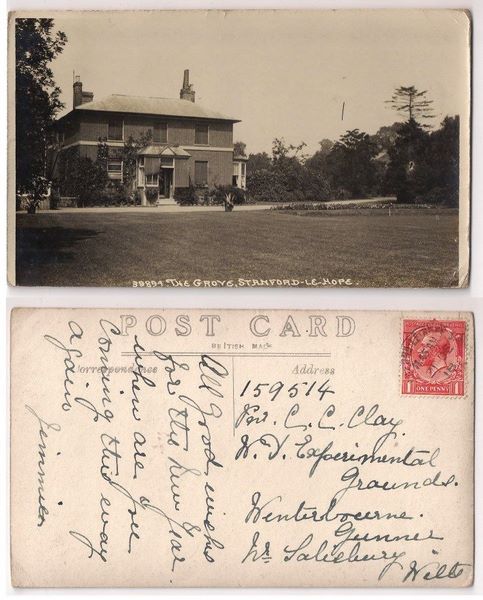 39894. THE GROVE, STANFORD-LE-HOPE.
POST CARD
BRITISH MADE
Correspondence
Address
All good wishes
for the New Year.
when are you
Coming this way
again
Jimmie.
159514
Pnr. C. C. Clay.
W. D. Experimental
Grounds.
Winterbourne.
Gunner
Nr. Salisbury
Wilts
ONE PENNY
1 1